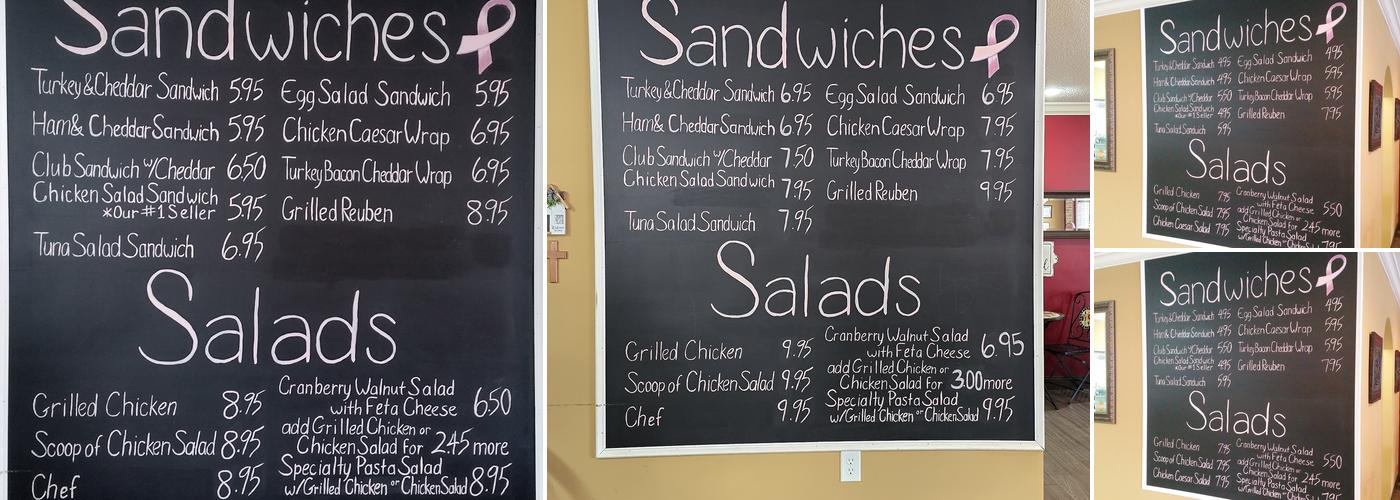 Sandwiches
Turkey & Cheddar Sandwich 5.95
Ham & Cheddar Sandwich 5.95
Club Sandwich w/Cheddar 6.50
Chicken Salad Sandwich
*Our #1 Seller 5.95
Tuna Salad Sandwich 6.95
Egg Salad Sandwich 5.95
Chicken Caesar Wrap 6.95
Turkey Bacon Cheddar Wrap 6.95
Grilled Reuben 8.95
Salads
Grilled Chicken 8.95
Scoop of Chicken Salad 8.95
Chef 8.95
Cranberry Walnut Salad
with Feta Cheese 6.50
add Grilled Chicken or
Chicken Salad for 2.45 more
Specialty Pasta Salad
w/Grilled Chicken or Chicken Salad 8.95
Sandwiches
Turkey & Cheddar Sandwich 6.95
Ham & Cheddar Sandwich 6.95
Club Sandwich w/Cheddar 7.50
Chicken Salad Sandwich
7.95
Tuna Salad Sandwich 7.95
Egg Salad Sandwich 6.95
Chicken Caesar Wrap 7.95
Turkey Bacon Cheddar Wrap 7.95
Grilled Reuben 9.95
Salads
Grilled Chicken 9.95
Scoop of Chicken Salad 9.95
Chef 9.95
Cranberry Walnut Salad
with Feta Cheese 6.95
add Grilled Chicken or
Chicken Salad for 3.00 more
Specialty Pasta Salad
w/Grilled Chicken or Chicken Salad 9.95
Sandwiches
Turkey & Cheddar Sandwich 4.95
Ham & Cheddar Sandwich 4.95
Club Sandwich w/Cheddar 5.50
Chicken Salad Sandwich
*Our #1 Seller 4.95
Tuna Salad Sandwich 5.95
Egg Salad Sandwich 4.95
Chicken Caesar Wrap 5.95
Turkey Bacon Cheddar Wrap 5.95
Grilled Reuben 7.95
Salads
Grilled Chicken 7.95
Scoop of Chicken Salad 7.95
Chicken Caesar Salad 7.95
Cranberry Walnut Salad
with Feta Cheese 5.50
add Grilled Chicken or
Chicken Salad for 2.45 more
Specialty Pasta Salad
w/Grilled Chicken or Chicken 7.95
Sandwiches
Turkey & Cheddar Sandwich 4.95
Ham & Cheddar Sandwich 4.95
Club Sandwich w/Cheddar 5.50
Chicken Salad Sandwich
*Our #1 Seller 4.95
Tuna Salad Sandwich 5.95
Egg Salad Sandwich 4.95
Chicken Caesar Wrap 5.95
Turkey Bacon Cheddar Wrap 5.95
Grilled Reuben 7.95
Salads
Grilled Chicken 7.95
Scoop of Chicken Salad 7.95
Chicken Caesar Salad 7.95
Cranberry Walnut Salad
with Feta Cheese 5.50
add Grilled Chicken or
Chicken Salad for 2.45 more
Specialty Pasta Salad
w/Grilled Chicken or Chicken